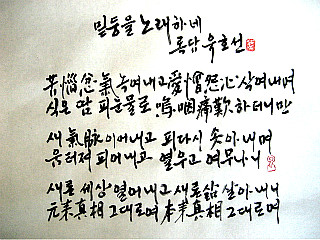 밑둥을 노래하네
록담 유호선
苦惱忿氣 녹여내고 愛憎怨心 삭여내며
식은 땀 피눈물로 嗚咽痛歎 하더니만
새 氣脈 이어내고 피다시 솟아내며
움터져 피어내고 열우고 여무나니
새론 세상 열어내고 새론 삶 살아내니
元来真相 그대로며 本来真相 그대로며